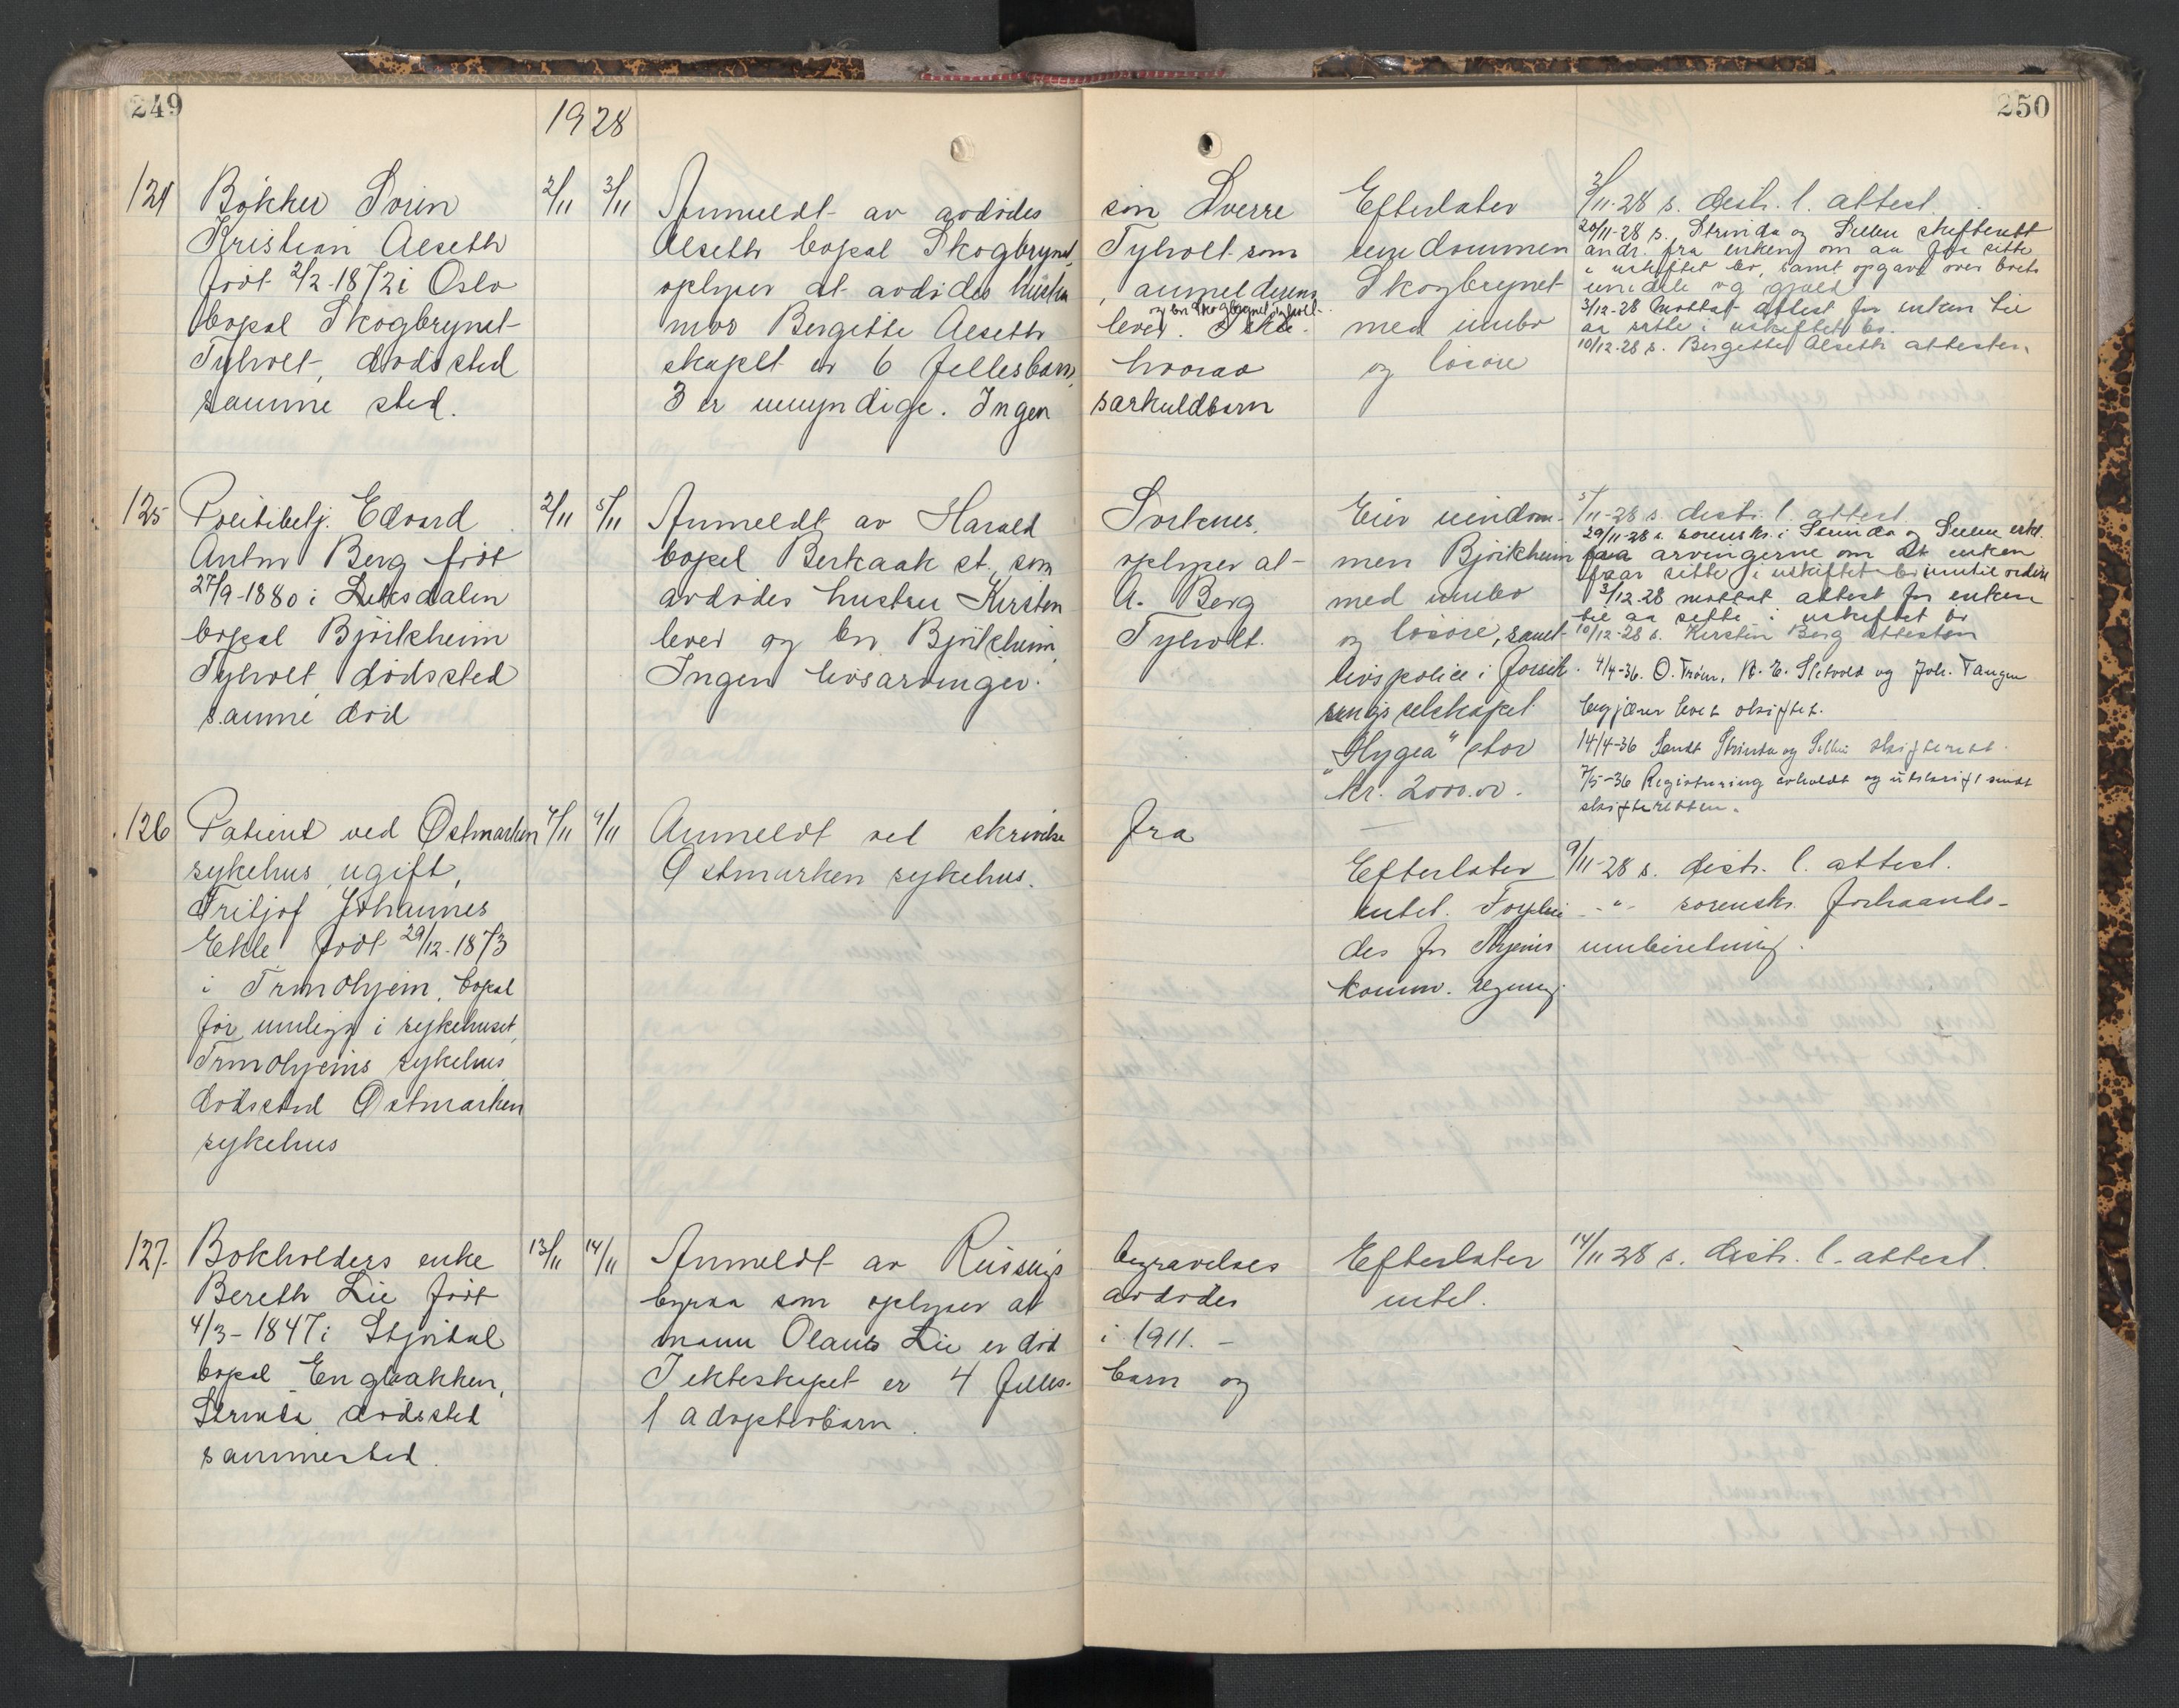 249
1928
250
124
Bøkker Sørin
Kristian Alseth
født 2/2-1872 i Oslo
bopæl Skogbrynet
Tyholt, dødssted
samme sted.
2/11 3/11
Anmeldt av avdødes
Alseth bopæl Skogbrynet,
oplyser at avdødes hustru
mor Bergitte Alseth
skapet er 6 fellesbarn,
3 er umyndige. Ingen
søn Sverre
Tyholt som
, anmelderens
og bor Skogbrynet Tyholt.
lever. I ekte-
hvorav
særkuldbarn
Efterlater
eiendommen
Skogbrynet
med innbo
og løsøre
3/11-28 s. distr. l. attest.
20/11-28 s. Strinda og Selbu skifterett
andr. fra enken om aa faa sitte
i uskiftet bo, samt opgave over boets
eiendele og gjæld
3/12-28 Mottat attest for enken til
aa sitte i uskiftet bo.
10/12-28 s. Bergitte Alseth attesten
125
Politibetj. Edvard
Anton Berg født
27/9-1880 i Leksdalen
bopæl Bjørkheim
Tyholt dødssted
samme sted
2/11 5/11
Anmeldt av Harald
bopæl Berkaak st. som
avdødes hustru Kirsten
lever og bor Bjørkheim,
Ingen livsarvinger.
Sorknes.
oplyser at
A. Berg
Tyholt.
Eier eiendom-
men Bjørkheim
med innbo
og løsøre, samt
livspolice i forsik-
ringsselskapet
"Hygea" stor
kr. 2000.00.
5/11-28 s. distr. l. attest.
29/11-28 s. sorensk. i Strinda og Selbu erkl.
fra arvingerne om at enken
faar sitte i uskiftet bo inntil videre
3/12-28 mottat attest for enken
til aa sitte i uskiftet bo
10/12-28 s. Kirsten Berg attesten
4/4-36. O. Trøen, N. E. Sletvold og Joh. Tangen
begjærer boet skiftet.
14/4-36 Sendt Strinda og Selbu skifterett.
7/5-36 Registrering avholdt og utskrift sendt
skifteretten.
126
Patient ved Østmarken
sykehus, ugift,
Fritjof Johannes
Ekle født 29/12-1873
i Trondhjem, bopæl
før innlegg i sykehuset,
Trondhjems sykehus
dødssted Østmarken
sykehus
4/11 9/11
Anmeldt ved skrivelse
Østmarken sykehus.
fra
Efterlater
intet. Forplei
des for Thjems
komm. regning.
9/11-28 s. distr. l. attest.
-"- sorensk. forhaands-
innberetning.
127.
Bokholders enke
Bereth Lie født
4/3-1847 i Stjørdal
bopæl Engbakken,
Strinda, dødssted
sammested.
13/11 14/11
Anmeldt av Russvigs
byraa som oplyser at
mann Olaus Lie er død
I ekteskapet er 4 felles-
1 adoptivbarn.
begravelses
avdødes
i 1911. -
barn og
Efterlater
intet.
14/11 28 s. distr. l. attest.